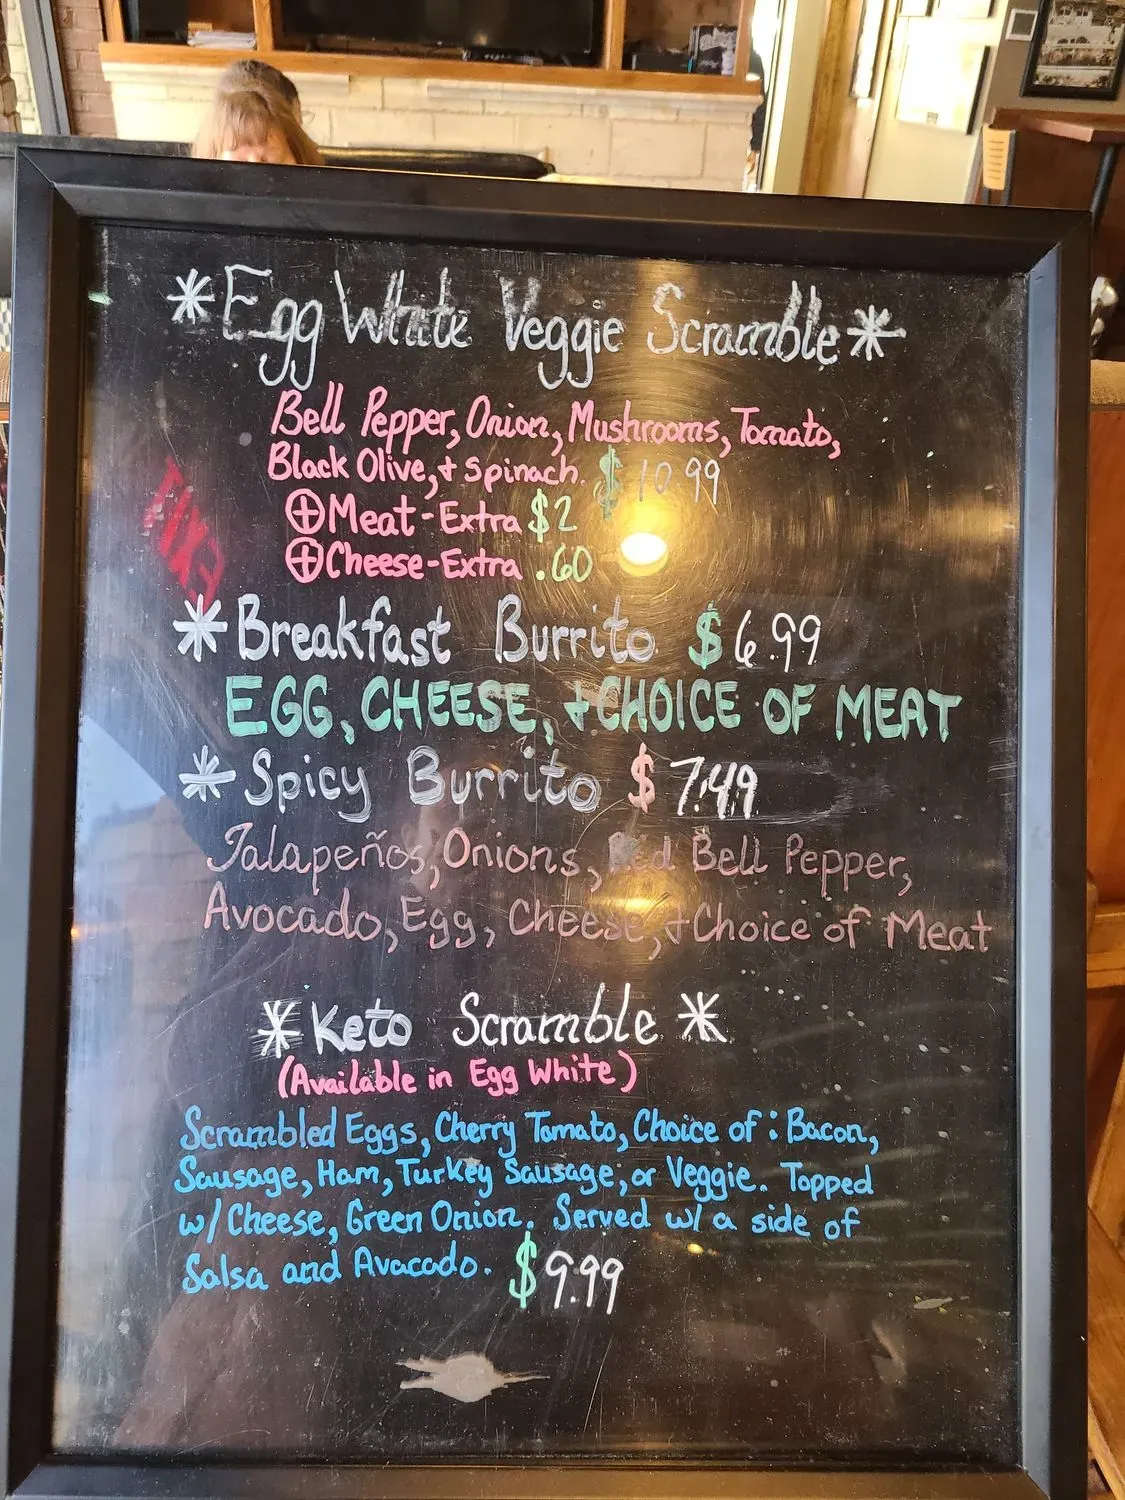 *Egg White Veggie Scramble*
Bell Pepper, Onion, Mushrooms, Tomato,
Black Olive, + Spinach. $10.99
⊕Meat-Extra $2
⊕Cheese-Extra .60
*Breakfast Burrito $6.99
EGG, CHEESE, + CHOICE OF MEAT
*Spicy Burrito $7.49
Jalapeños, Onions, Red Bell Pepper,
Avocado, Egg, Cheese, + Choice of Meat
*Keto Scramble*
(Available in Egg White)
Scrambled Eggs, Cherry Tomato, Choice of: Bacon,
Sausage, Ham, Turkey Sausage, or Veggie. Topped
w/ Cheese, Green Onion. Served w/ a side of
Salsa and Avacado. $9.99